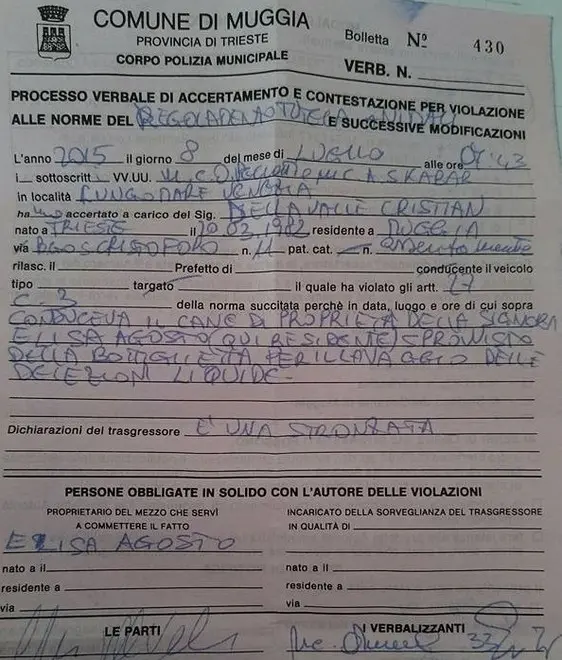 COMUNE DI MUGGIA
PROVINCIA DI TRIESTE
CORPO POLIZIA MUNICIPALE
Bolletta Nº 430
VERB. N.
PROCESSO VERBALE DI ACCERTAMENTO E CONTESTAZIONE PER VIOLAZIONE
ALLE NORME DEL TUTELA ANIMALI E SUCCESSIVE MODIFICAZIONI
L'anno 2015 il giorno 8 del mese di LUGLIO alle ore
i sottoscritt VV.UU.
in località LUNGOMARE VENEZIA
ha accertato a carico del Sig. DELLAVALLE CRISTIAN
nato a TRIESTE il 20.03.1982 residente a MUGGIA
via n. 11 pat. cat. n.
rilasc. il Prefetto di conducente il veicolo
tipo targato il quale ha violato gli artt. 27
C. 3 della norma succitata perchè in data, luogo e ore di cui sopra
CONDUCEVA IL CANE DI PROPRIETA DELLA SIGNORA
ELISA AGOSTO (QUI RESIDENTE) SPROVVISTO
DELLA BOTTIGLIETTA PER IL LAVAGGIO DELLE
DEIEZIONI LIQUIDE-
Dichiarazioni del trasgressore E' UNA STRONZATA
PERSONE OBBLIGATE IN SOLIDO CON L'AUTORE DELLE VIOLAZIONI
PROPRIETARIO DEL MEZZO CHE SERVÌ
A COMMETTERE IL FATTO
ELISA AGOSTO
nato a il
residente a
via
INCARICATO DELLA SORVEGLIANZA DEL TRASGRESSORE
IN QUALITÀ DI
nato a il
residente a
via
LE PARTI
I VERBALIZZANTI